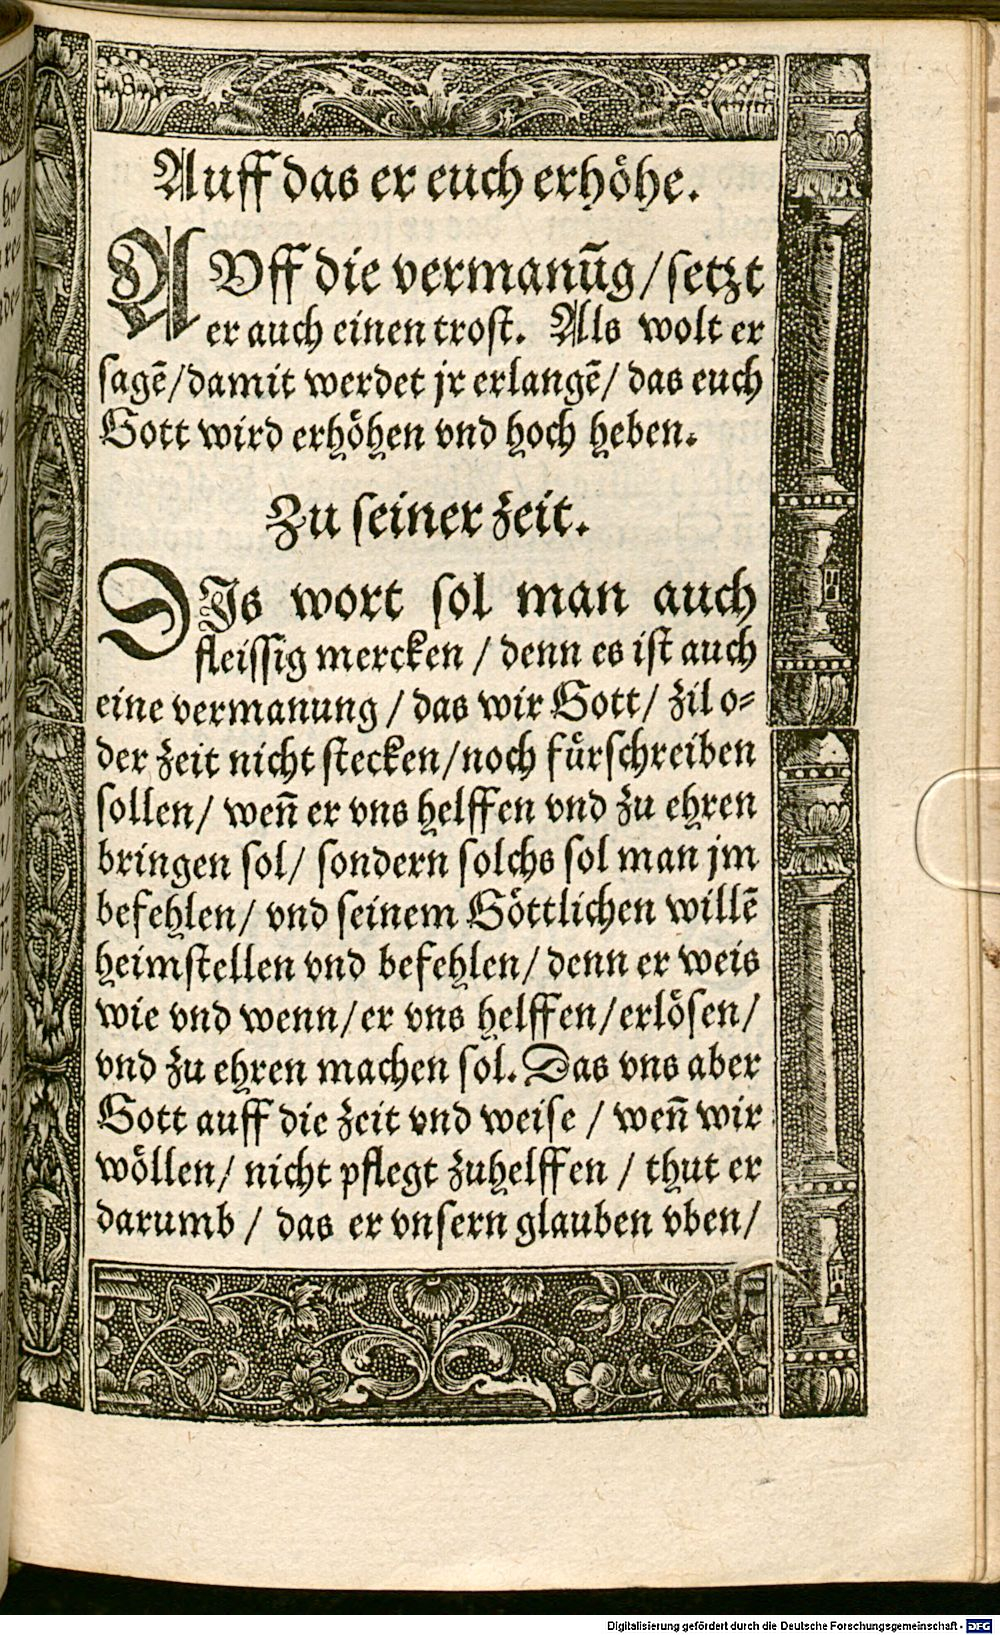 Auff das er euch erhöhe.
AVff die vermanūg/ setzt
er auch einen trost. Als wolt er
sagē/damit werdet jr erlangē/ das euch
Gott wird erhöhen vnd hoch heben.
Zu seiner zeit.
DIs wort sol man auch
fleissig mercken / denn es ist auch
eine vermanung / das wir Gott/ zil o⸗
der zeit nicht stecken/noch fürschreiben
sollen/ wen̄ er vns helffen vnd zu ehren
bringen sol/ sondern solchs sol man jm
befehlen/ vnd seinem Göttlichen willē
heimstellen vnd befehlen/ denn er weis
wie vnd wenn/er vns helffen/erlösen/
vnd zu ehren machen sol. Das vns aber
Gott auff die zeit vnd weise / wen̄ wir
wöllen/ nicht pflegt zuhelffen / thut er
darumb / das er vnsern glauben vben/
Digitalisierung gefördert durch die Deutsche Forschungsgemeinschaft - DFG